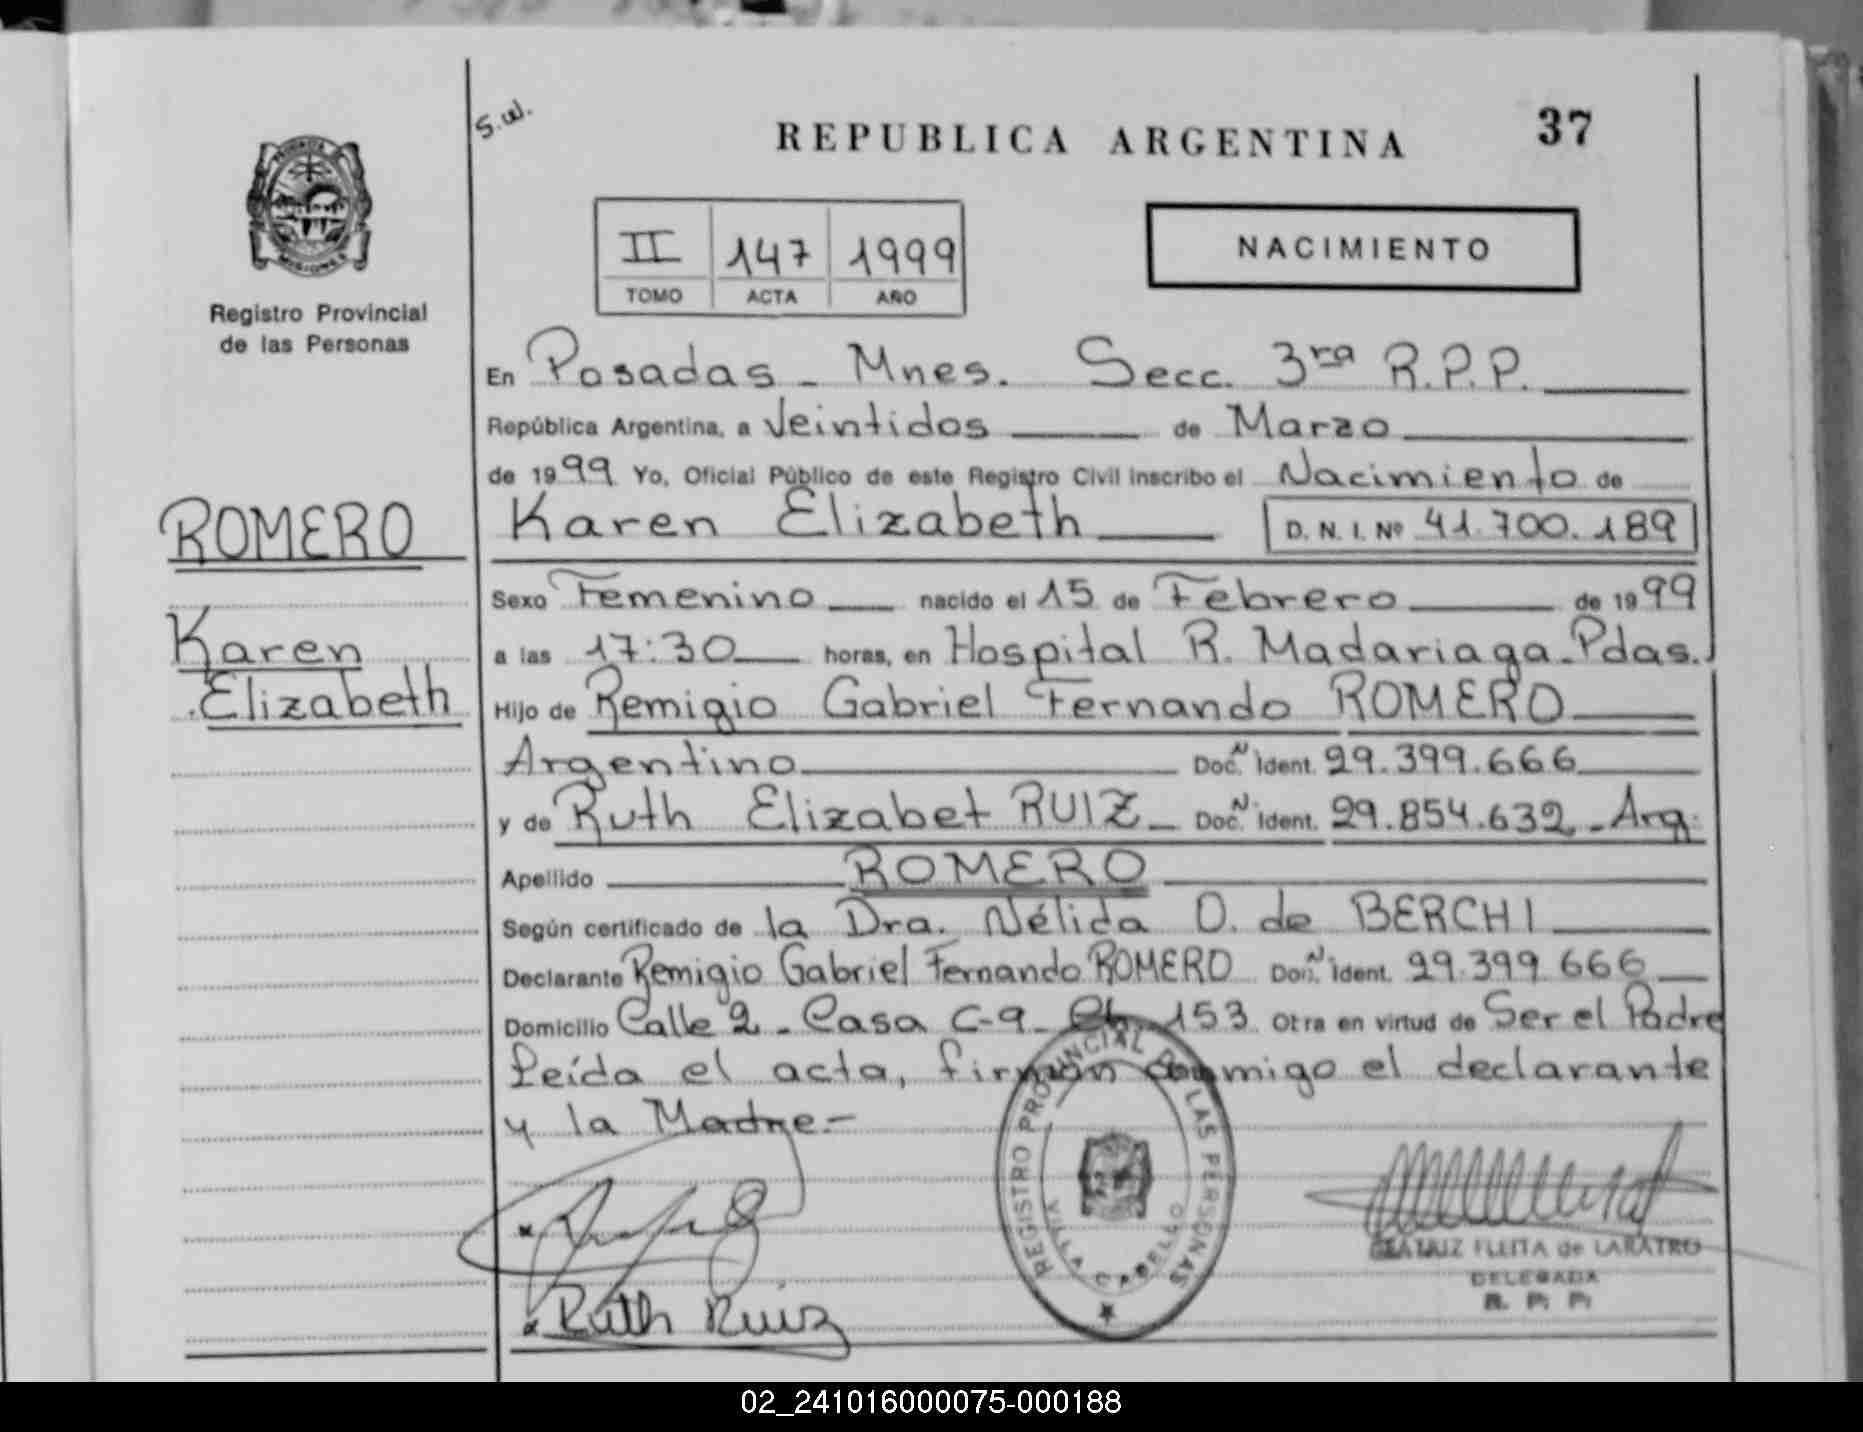 S.W.
REPUBLICA ARGENTINA 37
PROVINCIA
MISIONES
Registro Provincial
de las Personas
II 147 1999
TOMO ACTA AÑO
NACIMIENTO
En Posadas - Mnes. Secc. 3ra R.P.P.
República Argentina, a Veintidos de Marzo
de 1999 Yo, Oficial Público de este Registro Civil inscribo el Nacimiento de
Karen Elizabeth D. N. I. Nº 41.700.189
ROMERO
Karen
Elizabeth
Sexo Femenino nacido el 15 de Febrero de 1999
a las 17:30 horas, en Hospital R. Madariaga - Pdas.
Hijo de Remigio Gabriel Fernando ROMERO
Argentino Doc. N Ident. 29.399.666
y de Ruth Elizabet RUIZ - Doc. N Ident. 29.854.632 - Arg.
Apellido ROMERO
Según certificado de la Dra. Nélida O. de BERCHI
Declarante Remigio Gabriel Fernando ROMERO Doc. N Ident. 29.399.666
Domicilio Calle 2 - Casa C-9 - Ch. 153 Otra en virtud de Ser el Padre
Leída el acta, firman conmigo el declarante
y la Madre.-
REGISTRO PROVINCIAL DE LAS PERSONAS
VILLA CABELLO
BEATRIZ FLEITA de LARATRO
DELEGADA
R. P. P.
Ruth Ruiz
02_241016000075-000188